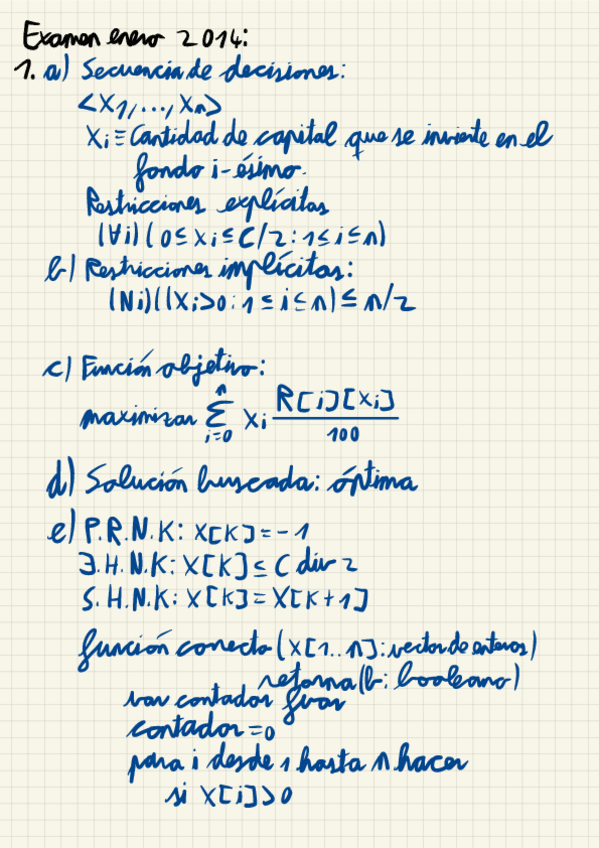 Examen enero 2014:
1. a) Secuencia de decisiones:
<X1,...,Xn>
Xi ≡ Cantidad de capital que se invierte en el
fondo i-ésimo.
Restricciones explícitas
(∀i)(0≤xi≤C/2:1≤i≤n)
b) Restricciones implícitas:
(Ni)((Xi>0:1≤i≤n)≤n/2
c) Función objetivo:
n
maximizar Σ Xi R[i][Xi]
i=0 100
d) Solución buscada: óptima
e) P.R.N.K: X[K]=-1
∃.H.N.K: X[K]≤C div 2
S.H.N.K: X[K]=X[K+1]
función correcto (X[1..n]: vector de enteros)
retorna (b: booleano)
var contador fvar
contador=0
para i desde 1 hasta n hacer
si X[i]>0